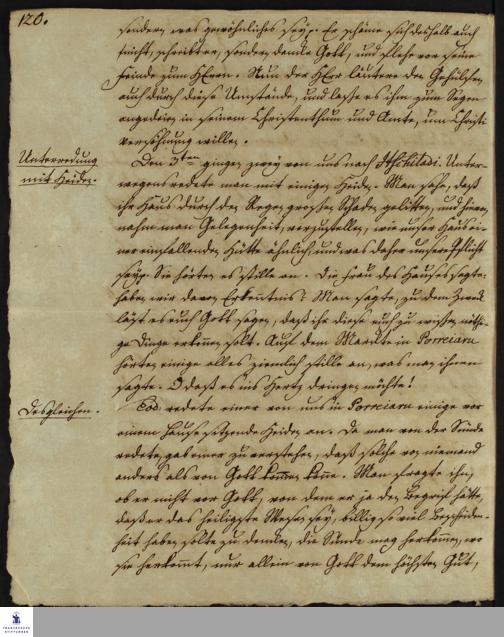 120.
sondern was gewöhnliches sey. Er schäme sich deshalb auch
nicht, schreibt er, sondern dancke Gott, und flehe vor seine
Feinde zum HErrn. Nun der HErr läutere den Gehülfen
auch durch diese Umstände, und lasse es ihm zum Segen
angedeien in seinem Christenthum und Amte, um Christi
Versöhnung willen.
Unterredung
mit Heiden.
Den 3ten gingen zwey von uns nach Itchiladi. Unter-
wegens redete man mit einigen Heiden. Man sahe, daß
ihr Haus durch den Regen grossen Schaden gelitten, und hievon
nahm man Gelegenheit, vorzustellen, wie unser Haus ei-
ner einfallenden Hütte ähnlich, und was daher unsere Pflicht
sey. Sie hörten es stille an. Die Frau des Hauses sagte:
haben wir davon Erkenntnis? Man sagte, zu dem Zweck
läst es euch Gott sagen, daß ihr diese euch zu wissen nöthi-
ge Dinge erkennen solt. Auf dem Marckte in Porreiaru
hörten einige alles ziemlich stille an, was man ihnen
sagte. O daß es ins Hertz dringen möchte!
Desgleichen.
Eod. redete einer von uns in Porreiaru einige vor
einem Hause sitzende Heiden an. Da man von der Sünde
redete, gab einer zu verstehen, daß solche von niemand
anders als von Gott kommen könne. Man fragte ihn,
ob er nicht vor Gott, von dem er ja den Begriff hätte,
daß er das heiligste Wesen sey, billig so viel Bescheiden-
heit haben solte zu dencken, die Sünde mag herkommen, wo
sie herkomt, nur allein von Gott dem höchsten Gut,
FRANCKESCHE
STIFTUNGEN